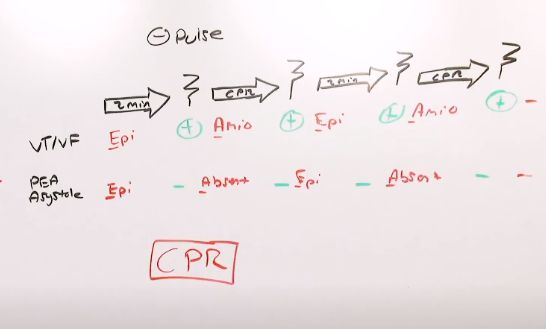 ⊖ Pulse
2 min CPR 2 min CPR
VT/VF Epi + Amio + Epi + Amio + -
PEA
Asystole Epi - Absent - Epi - Absent - -
CPR